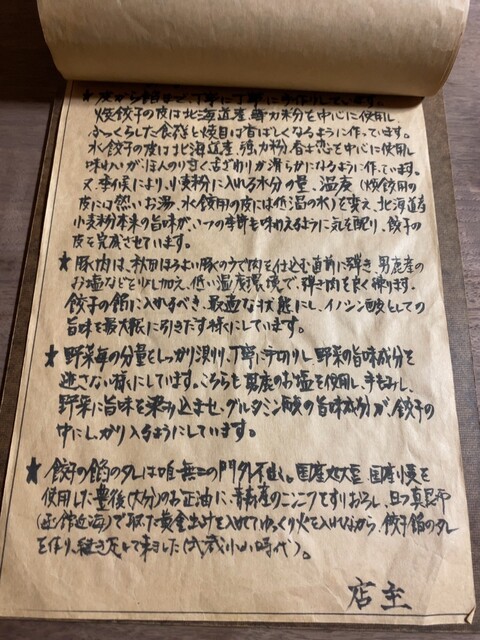 ★ 皮から餡まで、丁寧に丁寧に手作りしています。
焼餃子の皮は北海道産、薄力粉を中心に使用し、
ふっくらした食感と焼目は香ばしくなるように作っています。
水餃子の皮は北海道産、強力粉、春よ恋を中心に使用し
味わいがほんのり甘く舌ざわりが滑らかになるように作っています。
又、季候により、小麦粉に入れる水分の量、温度(焼餃用の
皮には熱いお湯、水餃用の皮には低温の水)を変え、北海道産
小麦粉本来の旨味が、いつの季節も味わえるように気を配り、餃子の
皮を完成させています。
★ 豚肉は、秋田ほろよい豚のウデ肉を仕込む直前に弾き、男鹿産の
お塩などを少し加え、低い温度環境で、弾き肉を良く練ります。
餃子の餡に入れるべき、最適な状態にし、イノシン酸としての
旨味を最大限に引きだす様にしています。
★ 野菜毎の分量をしっかり測り、丁寧に手切りし、野菜の旨味成分を
逃さない様にしています。こちらも男鹿のお塩を使用し、手もみし、
野菜に旨味を染み込ませ、グルタミン酸の旨味成分が、餃子の
中にしっかり入るようにしています。
★ 餃子の餡のタレは唯一無二の門外不出。国産丸大豆、国産小麦を
使用した豊後(大分)のお正油に、青森産のニンニクをすりおろし、日つ真昆布
(函館近海)で取った黄金出汁を入れてゆっくり火を入れながら、餃子餡のタレ
を作り、継ぎ足して来ました(武蔵小山時代)。
店主